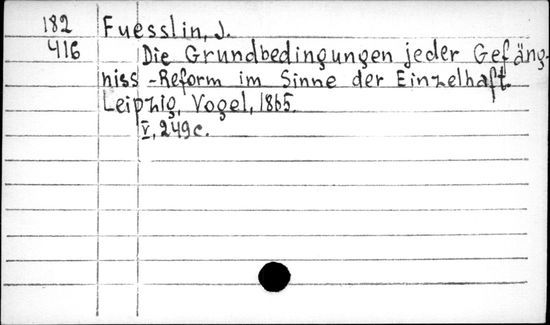 182 Fuesslin, J.
416 Die Grundbedingungen jeder Gefäng-
niss-Reform im Sinne der Einzelhaft.
Leipzig, Vogel, 1865.
V, 249c.